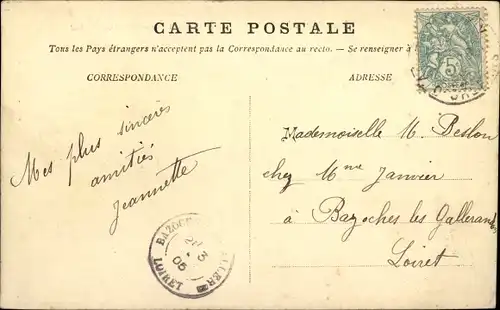 CARTE POSTALE
Tous les Pays étrangers n'acceptent pas la Correspondance au recto. — Se renseigner à
CORRESPONDANCE
ADRESSE
5
Mes plus sincères
amitiés
Jeannette
Mademoiselle M. Deslon
chez Mme Janvier
à Bazoches les Gallerandes
Loiret
BAZOC
3
05
LOIRET